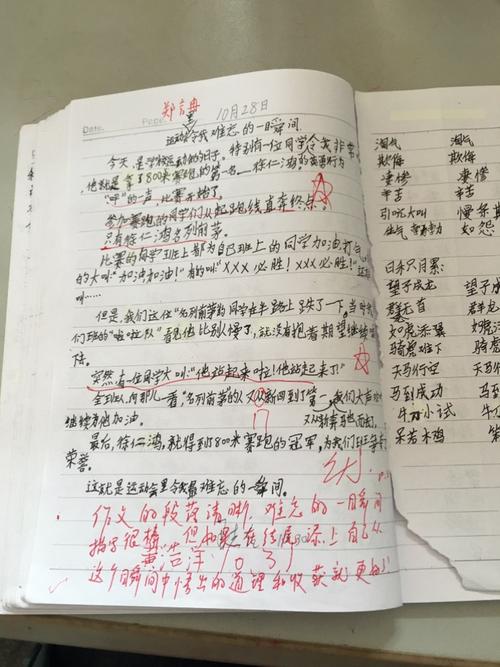 郑言冉
Date. Page. 10月28日
运动会里令我难忘的一瞬间.
今天,是学校运动的日子。特别有一位同学令我非常
他就是 拿了800米赛跑的第一名——徐仁鸿的英勇行为
"呯"的一声,比赛开始了。
参加赛跑的同学们从起跑线直奔终点。
只有徐仁鸿名列前茅。
比赛的同学班上都为自己班上的同学加油打气
的大叫"加油加油!"有的叫"XXX必胜!XXX必胜!"
叫……
但是,我们这位"名列前茅"的同学在半路上跌了一下,当时
们班的"啦啦队"看见他比别人慢了,就没有抱着期望继续
陆。
突然有一位同学大叫"他站起来啦!他站起来了!"
全班人向那儿一看"名列前茅"的人又从新回到了第一,我们大声
继续为他加油。
最后,徐仁鸿,就得到了800米赛跑的冠军,为我们班争
荣誉。
这就是运动会里令我最难忘的一瞬间。
作文的段落清晰,难忘的一瞬间
描写很棒,但如果在结尾添上自己从
黄浩洋 10.31
这个瞬间中悟出的道理和收获就更好
淘气 淘气
欺悔 欺悔
凄惨 凄惨
辛苦 辛苦
引吭大叫 慢条斯
如怨
日禾只月累:
望子成龙 望子成
群龙无首 群龙
如虎添翼 如虎
骑虎难下 骑虎
天马行空 天马行
马到成功 马到
牛刀小试 牛刀
呆若木鸡 呆